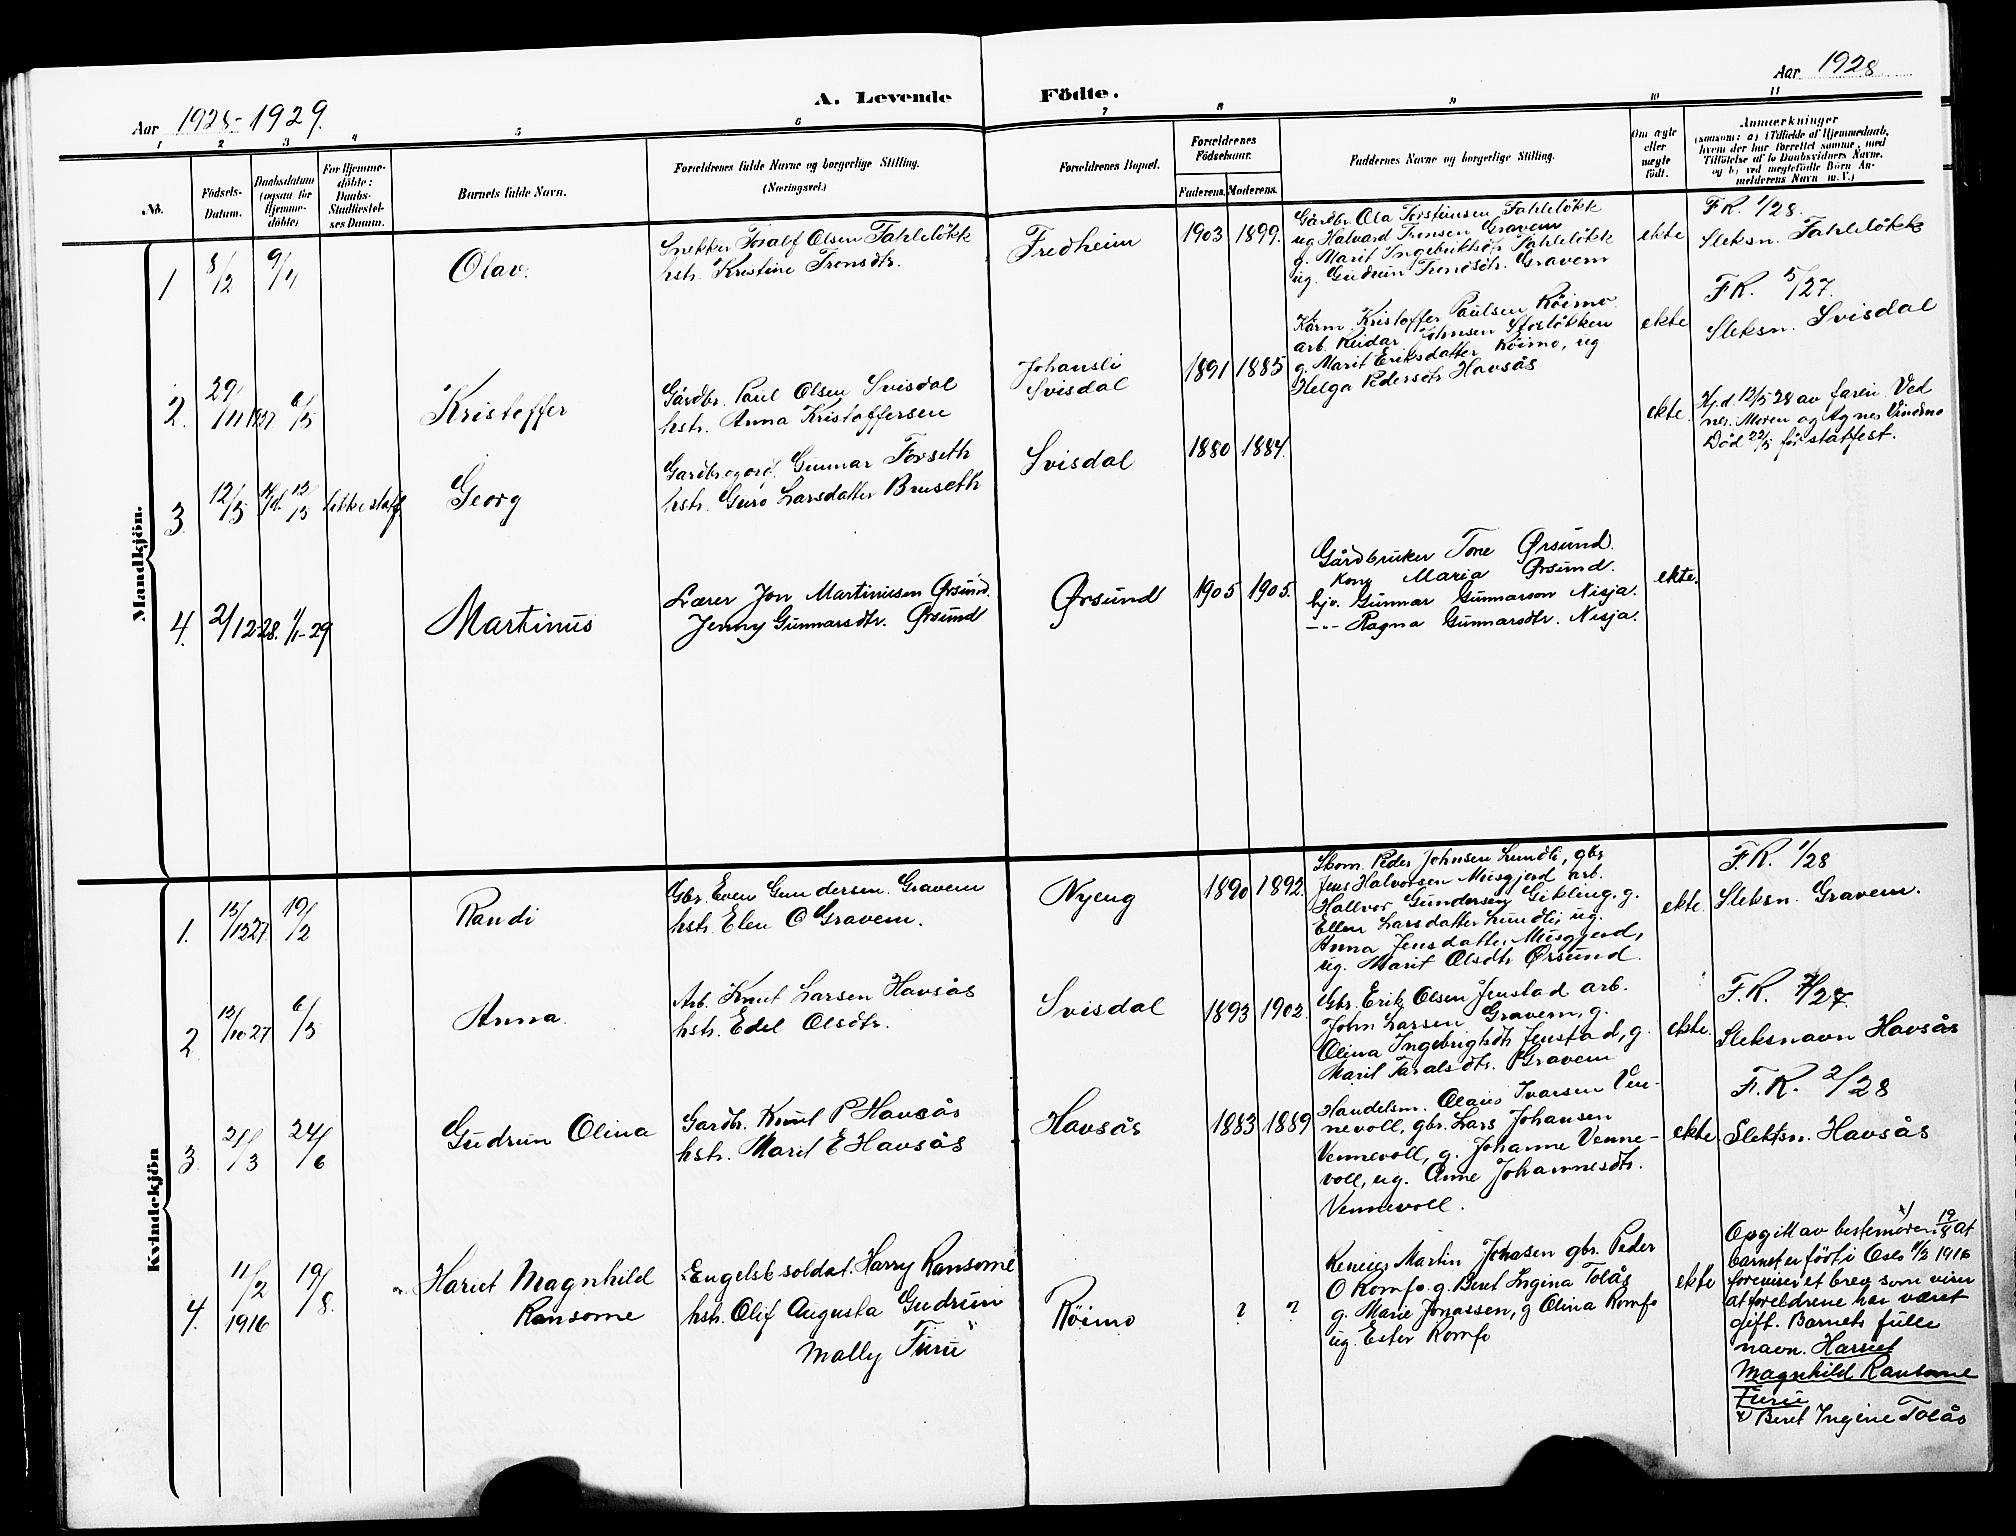 Aar 1928-1929.
A. Levende Födte.
Aar 1928
1 2 3 4 5 6 7 8 9 10 11
No.
Födsels-Datum.
Daabsdatum (ogsaa for Hjemmedöbte)
For Hjemmedöbte: Daabs-Stadfæstelses Datum.
Barnets fulde Navn.
Forældrenes fulde Navne og borgerlige Stilling.
(Næringsvei.)
Forældrenes Bopæl.
Forældrenes Födselsaar.
Faderens. Moderens.
Faddernes Navne og borgerlige Stilling.
Om ægte eller uægte födt.
Anmærkninger
(saasom: a) i Tilfælde af Hjemmedaab, hvem der har forrettet samme, med Tilföielse af to Daabsvidners Navne, og b) ved uægtefödte Börn Anmelderens Navn o. V.)
Mandkjön.
1
8/2
9/4
Olav.
Snekker Toralf Olsen Fahleløkk
hstr. Kristine Tronsdtr.
Fredheim
1903 1899.
Gårdbr. Ola Torsteinsen Fahleløkk
ug Halvard Tronsen Gravem
g. Marit Ingebriktsdtr Fahleløkk
ug. Gudrun Tronsdtr. Gravem
ekte
F.R. 1/28.
Sleksn. Fahleløkk
2.
29/11 1927
6/5
Kristoffer
Gårdbr. Paul Olsen Svisdal
hstr. Anna Kristoffersen
Johansli
Svisdal
1891 1885
Kårm. Kristoffer Paulsen Röimo
arb. Reidar Johnsen Storløkken
g. Marit Eriksdatter Röimo, ug
Helga Pedersdtr Havsås
ekte
F.R. 5/27.
Sleksn. Svisdal
3
12/5
Georg
Gardbr og ord. Gunnar Forseth
hstr. Guro Larsdatter Bruseth
Svisdal
1880 1884
ekte.
Hj.d. 12/5 28 av faren Ved
nes. Moren og Agnes Vindmo
Död 22/5 før statfest.
4.
2/12-28. 1/1-29
Martinus
Lærer Jon Martinusen Ørsund.
Jenny Gunnarsdtr. Ørsund
Ørsund
1905 1905.
Gårdbruker Tore Ørsund.
Kone Maria Ørsund.
hjv. Gunnar Gunnarson Nisja.
--- Ragna Gunnarsdtr. Nisja.
ekte.
Kvindekjön
1.
15/12 27
19/2
Randi
Gbr. Even Gundersen Gravem
hstr. Elen O Gravem.
Nyeng
1890 1892.
Skom. Peder Johnsen Lundli, gbr
Jens Halvorsen Musgjerd arb.
Hallvor Gundersen Gikling, g.
Ellen Larsdatter Lundli, ug.
Anna Jensdatter Musgjerd,
ug. Marit Olsdtr Ørsund.
ekte.
F.R. 1/28
Sleksn. Gravem.
2
13/10 27
6/5
Anna.
Arb. Knut Larsen Havsås
hstr. Edel Olsdtr.
Svisdal
1893 1902.
Gbr. Erik Olsen Jenstad arb.
John Larsen Gravem, g.
Olina Ingebrigtsdtr Jenstad, g.
Marit Taralsdtr. Gravem
ekte.
F.R. 7/27.
Sleksnavn Havsås
3
21/3
24/6
Gudrun Olina
Gardbr. Knut P Havsås
hstr. Marit E Havsås
Havsås
1883 1889
Handelsm. Olaus Ivarsen Ven-
nevoll, gbr. Lars Johansen
Vennevoll, g. Johanne Venne-
voll, ug. Anne Johannesdtr.
Vennevoll.
ekte.
F.R. 2/28
Slektsn. Havsås
4.
11/2
1916
19/8.
Hariet Magnhild
Ransome
Engelsk soldat. Harry Ransome
hstr. Olif Augusta Gudrun
Mally Furu
Röimo
? ?
Martin Johasen gbr. Peder
O Romfo g. Beret Ingina Tolås
g. Marie Jonassen, g Olina Romfo
ug. Ester Romfo
ekte
Opgitt av bestemoren x) 19/8 at
barnet er født i Oslo 11/2 1916
foreviser et brev som viser
at foreldrene har været
gift. Barnets fulle
navn. Harriet
Magnhild Ransome
Furu
x) Beret Ingine Tolås